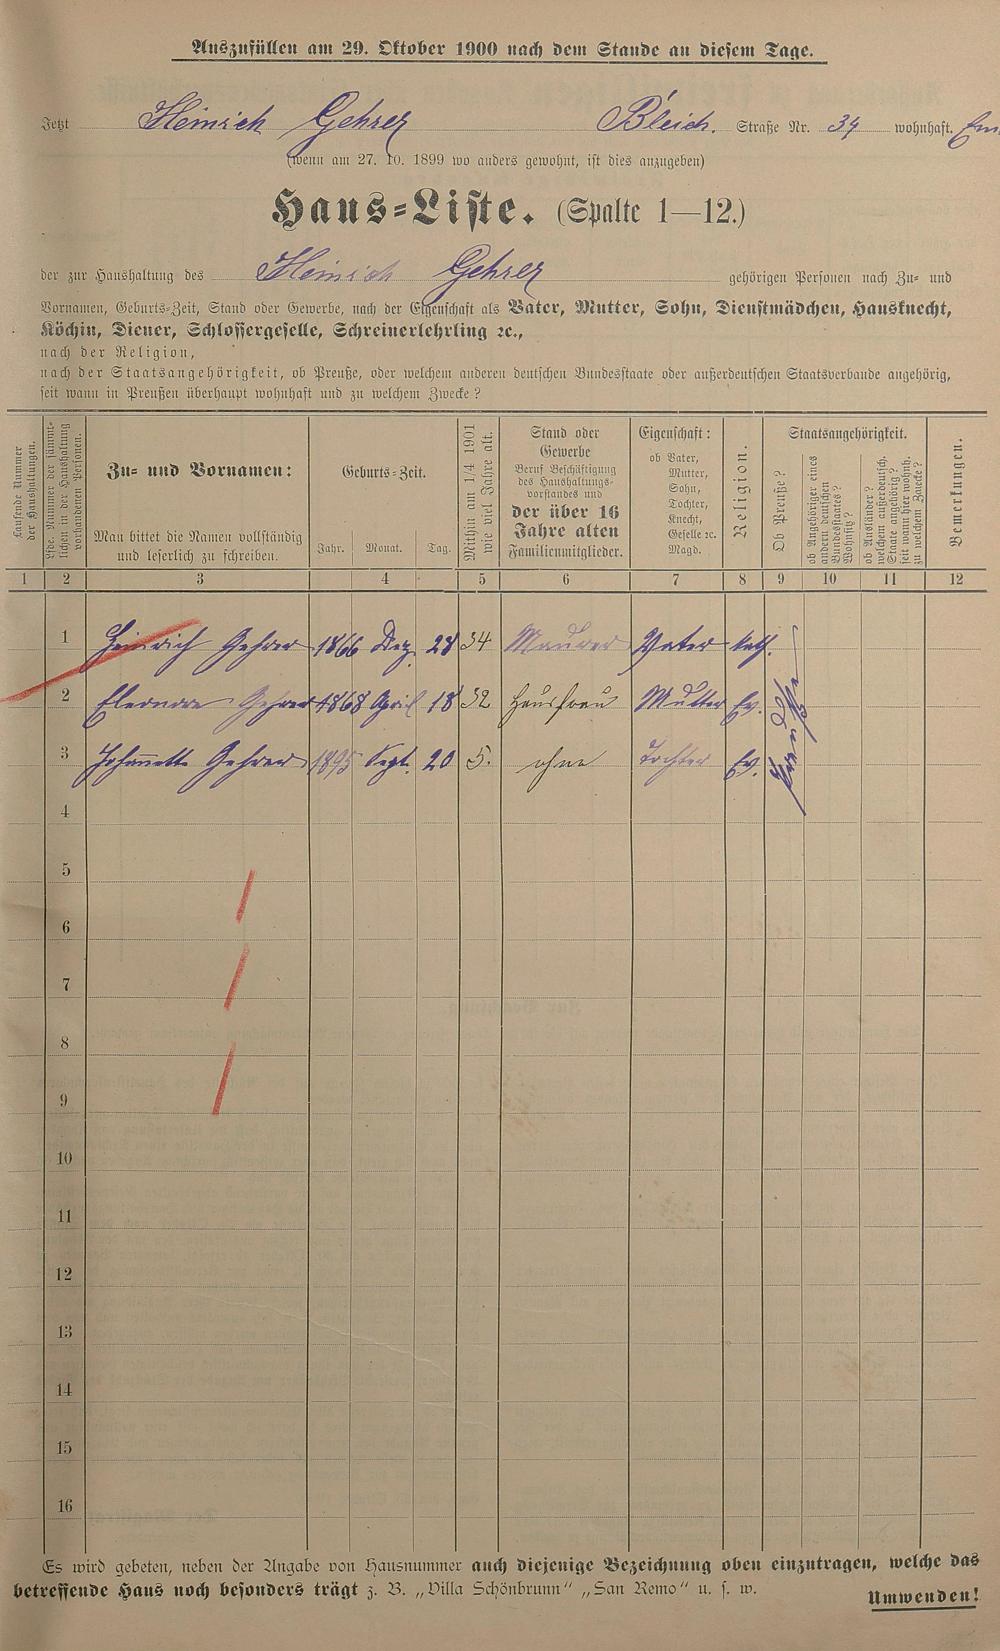 Auszufüllen am 29. Oktober 1900 nach dem Stande an diesem Tage.
Jetzt Heinrich Gehrer Bleich. Straße Nr. 34 wohnhaft. Em
(wenn am 27. 10. 1899 wo anders gewohnt, ist dies anzugeben)
Haus-Liste. (Spalte 1—12.)
der zur Haushaltung des Heinrich Gehrer gehörigen Personen nach Zu- und
Vornamen, Geburts-Zeit, Stand oder Gewerbe, nach der Eigenschaft als Vater, Mutter, Sohn, Dienstmädchen, Hausknecht,
Köchin, Diener, Schlossergeselle, Schreinerlehrling ꝛc.,
nach der Religion,
nach der Staatsangehörigkeit, ob Preuße, oder welchem anderen deutschen Bundesstaate oder außerdeutschen Staatsverbande angehörig,
seit wann in Preußen überhaupt wohnhaft und zu welchem Zwecke?
Laufende Nummer
der Haushaltungen.
Lfde. Nummer der sämmt-
lichen in der Haushaltung
vorhandenen Personen.
Zu- und Vornamen:
Man bittet die Namen vollständig
und leserlich zu schreiben.
Geburts-Zeit.
Jahr. Monat. Tag.
Mithin am 1/4 1901
wie viel Jahre alt.
Stand oder
Gewerbe
Beruf Beschäftigung
des Haushaltungs-
vorstandes und
der über 16
Jahre alten
Familienmitglieder.
Eigenschaft:
ob Vater,
Mutter,
Sohn,
Tochter,
Knecht,
Geselle ꝛc.
Magd.
Religion.
Staatsangehörigkeit.
Ob Preuße?
ob Angehöriger eines
andern deutschen
Bundesstaates?
Wohnsitz?
ob Ausländer?
welchem außerdeutsch.
Staate angehörig?
seit wann hier wohnh.
zu welchem Zwecke?
Bemerkungen.
1 2 3 4 5 6 7 8 9 10 11 12
1 Heinrich Gehrer 1866 Dez. 28 34 Maurer Vater kath.
2 Eleonore Gehrer 1868 April 18 32 Hausfrau Mutter Ev.
3 Johannette Gehrer 1895 Sept. 20 5. ohne Tochter Ev.
Preuße
4
5
6
7
8
9
10
11
12
13
14
15
16
Es wird gebeten, neben der Angabe von Hausnummer auch diejenige Bezeichnung oben einzutragen, welche das
betreffende Haus noch besonders trägt z. B. „Villa Schönbrunn" „San Remo" u. s. w.
Umwenden!